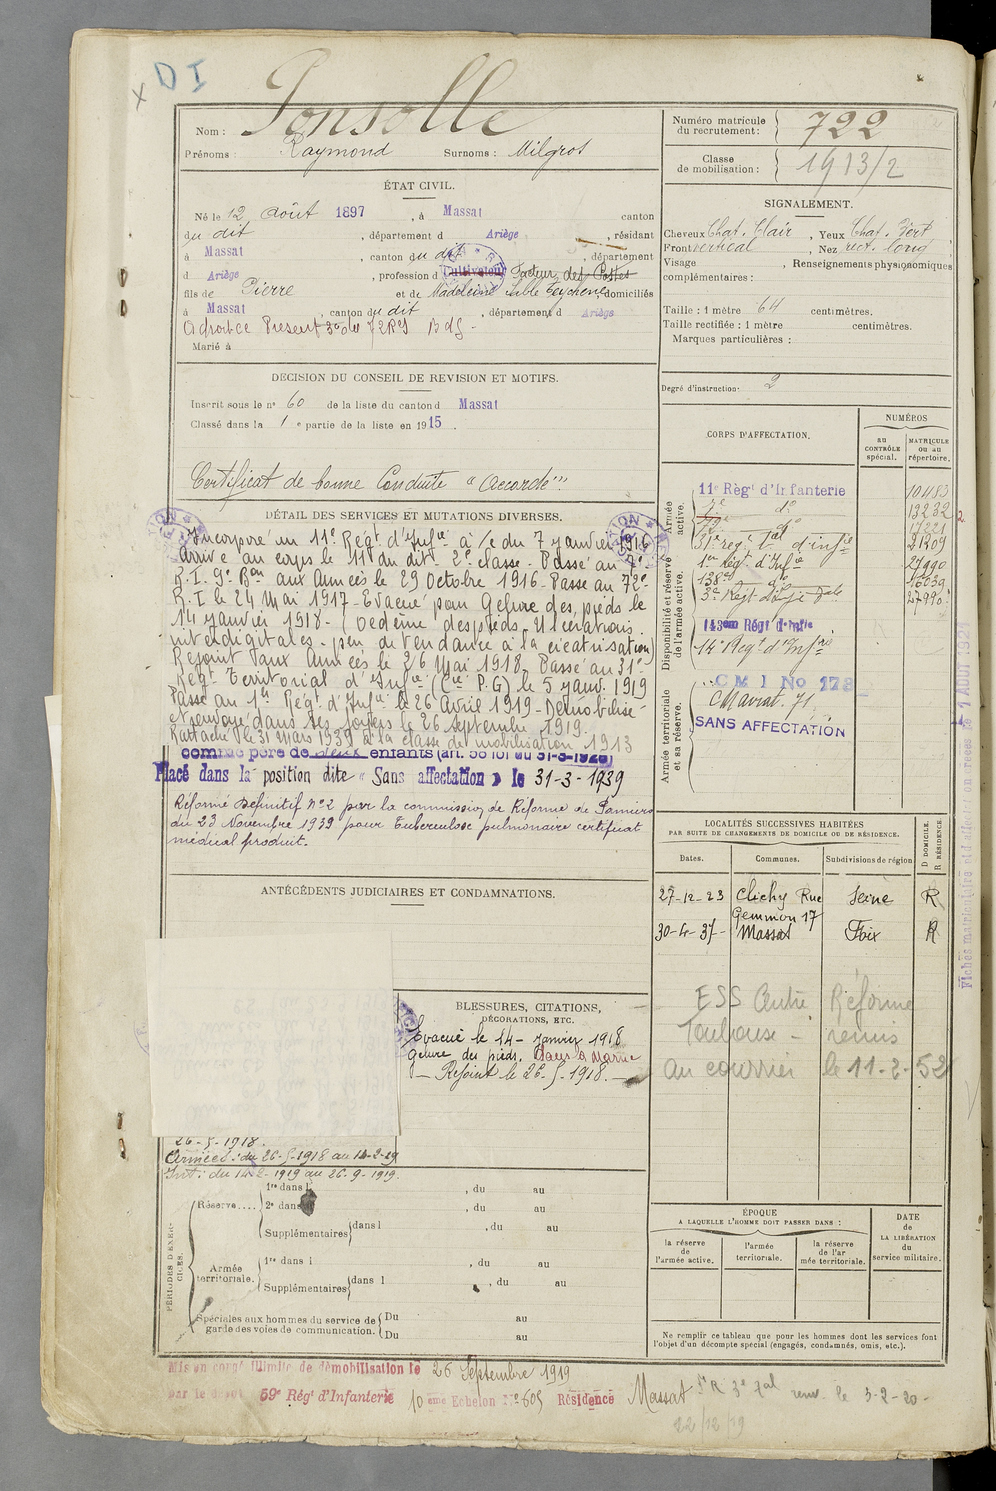 D I
x
Nom : Ponsolle
Prénoms : Raymond Surnoms : Milgros
Numéro matricule du recrutement : 722
Classe de mobilisation : 1913/2
ÉTAT CIVIL.
Né le 12 août 1897, à Massat canton
du dit, département d Ariège, résidant
à Massat, canton du dit, département
d Ariège, profession d Cultivateur Facteur des Postes
fils de Pierre et de Madeleine Eychenne, domiciliés
à Massat, canton du dit, département d Ariège
Marié à
SIGNALEMENT.
Cheveux Chat. Clair, Yeux Chat. Vert
Front vertical, Nez rect. long
Visage , Renseignements physiognomiques
complémentaires :
Taille : 1 mètre 64 centimètres.
Taille rectifiée : 1 mètre centimètres.
Marques particulières :
Degré d'instruction : 2
DÉCISION DU CONSEIL DE REVISION ET MOTIFS.
Inscrit sous le n° 60 de la liste du canton d Massat
Classé dans la 1e partie de la liste en 1915.
Certificat de bonne Conduite "Accordé"
DÉTAIL DES SERVICES ET MUTATIONS DIVERSES.
Incorporé au 11e Régt d'Infie à/c du 7 janvier 1916
Arrivé au corps le 11 du dit. 2e classe. Passé au 7e
R.I. 9e Bon aux Armées le 29 Octobre 1916. Passé au 72e
R.I le 24 Mai 1917. Evacué pour Gelure des pieds le
14 janvier 1918. (Oedème des pieds. Ulcérations
interdigitales. peu de tendance à la cicatrisation)
Rejoint aux Armées le 26 Mai 1918. Passé au 31e
Régt Territorial d'Infie (Cie P.G) le 5 janv. 1919
Passé au 1er Régt d'Infie le 26 Avril 1919. Démobilisé
et renvoyé dans ses foyers le 26 septembre 1919.
Rattaché le 31 Mars 1939 à la classe de mobilisation 1913
comme père de deux enfants (art. 58 loi du 31-3-1928)
Placé dans la position dite « Sans affectation » le 31-3-1939
Réformé Définitif N°2 par la commission de Réforme de Pamiers
du 23 Novembre 1939 pour Tuberculose pulmonaire certificat
médical produit.
CORPS D'AFFECTATION.
NUMÉROS
au CONTRÔLE spécial.
MATRICULE ou au répertoire.
Armée active.
11e Règt d'Infanterie 10483
7e do 13232
72e do 17221
31e régt tal d'infie 21309
Disponibilité et réserve de l'armée active.
1er Régt d'Infie 27990
138e do 16039
27990
143em Régt d'Infie
14e Régt d'Infrie
Armée territoriale et sa réserve.
C M I No 173
SANS AFFECTATION
LOCALITÉS SUCCESSIVES HABITÉES
PAR SUITE DE CHANGEMENTS DE DOMICILE OU DE RÉSIDENCE.
Dates. Communes. Subdivisions de région. D DOMICILE. R RÉSIDENCE.
27-12-23 Clichy Rue Seine R
17
30-4-37 Massat Foix R
ESS Centre Réforme
Toulouse - remis
au courrier le 11-2-52
ANTÉCÉDENTS JUDICIAIRES ET CONDAMNATIONS.
BLESSURES, CITATIONS,
DÉCORATIONS, ETC.
Evacué le 14 - janvier 1918
Gelure des pieds. Dans la Marne
— Rejoint le 26-5-1918. —
26-5-1918.
Armées : du 26-5-1918 au 14-2-19
Int : du 14-2-1919 au 26-9-1919.
PÉRIODES D'EXERCICES.
Réserve....
1re dans l , du au
2e dans , du au
Supplémentaires dans l , du au
Armée territoriale.
1re dans l , du au
Supplémentaires dans l , du au
Spéciales aux hommes du service de garde des voies de communication.
Du au
Du au
ÉPOQUE
A LAQUELLE L'HOMME DOIT PASSER DANS :
DATE DE LA LIBÉRATION du service militaire.
la réserve de l'armée active.
l'armée territoriale.
la réserve de l'armée territoriale.
Ne remplir ce tableau que pour les hommes dont les services font
l'objet d'un décompte spécial (engagés, condamnés, omis, etc.).
Mis en congé illimité de démobilisation le 26 Septembre 1919
par le dépôt 59e Régt d'Infanterie 10 ème Echelon N° 605 Résidence Massat
renv. le 3-2-20-
22/12/19